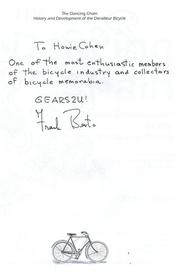 The Dancing Chain
History and Development of the Derailleur Bicycle
To Howie Cohen
One of the most enthusiastic members
of the bicycle industry and collectors
of bicycle memorabilia.
GEARS2U!
Frank Berto